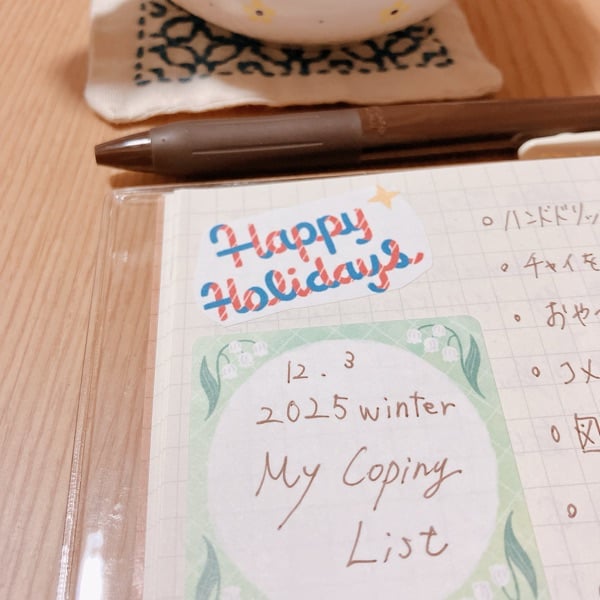 Happy
Holidays
12.3
2025 winter
My Coping
List
ハンドドリッ
チャイを
おや
コメ
図